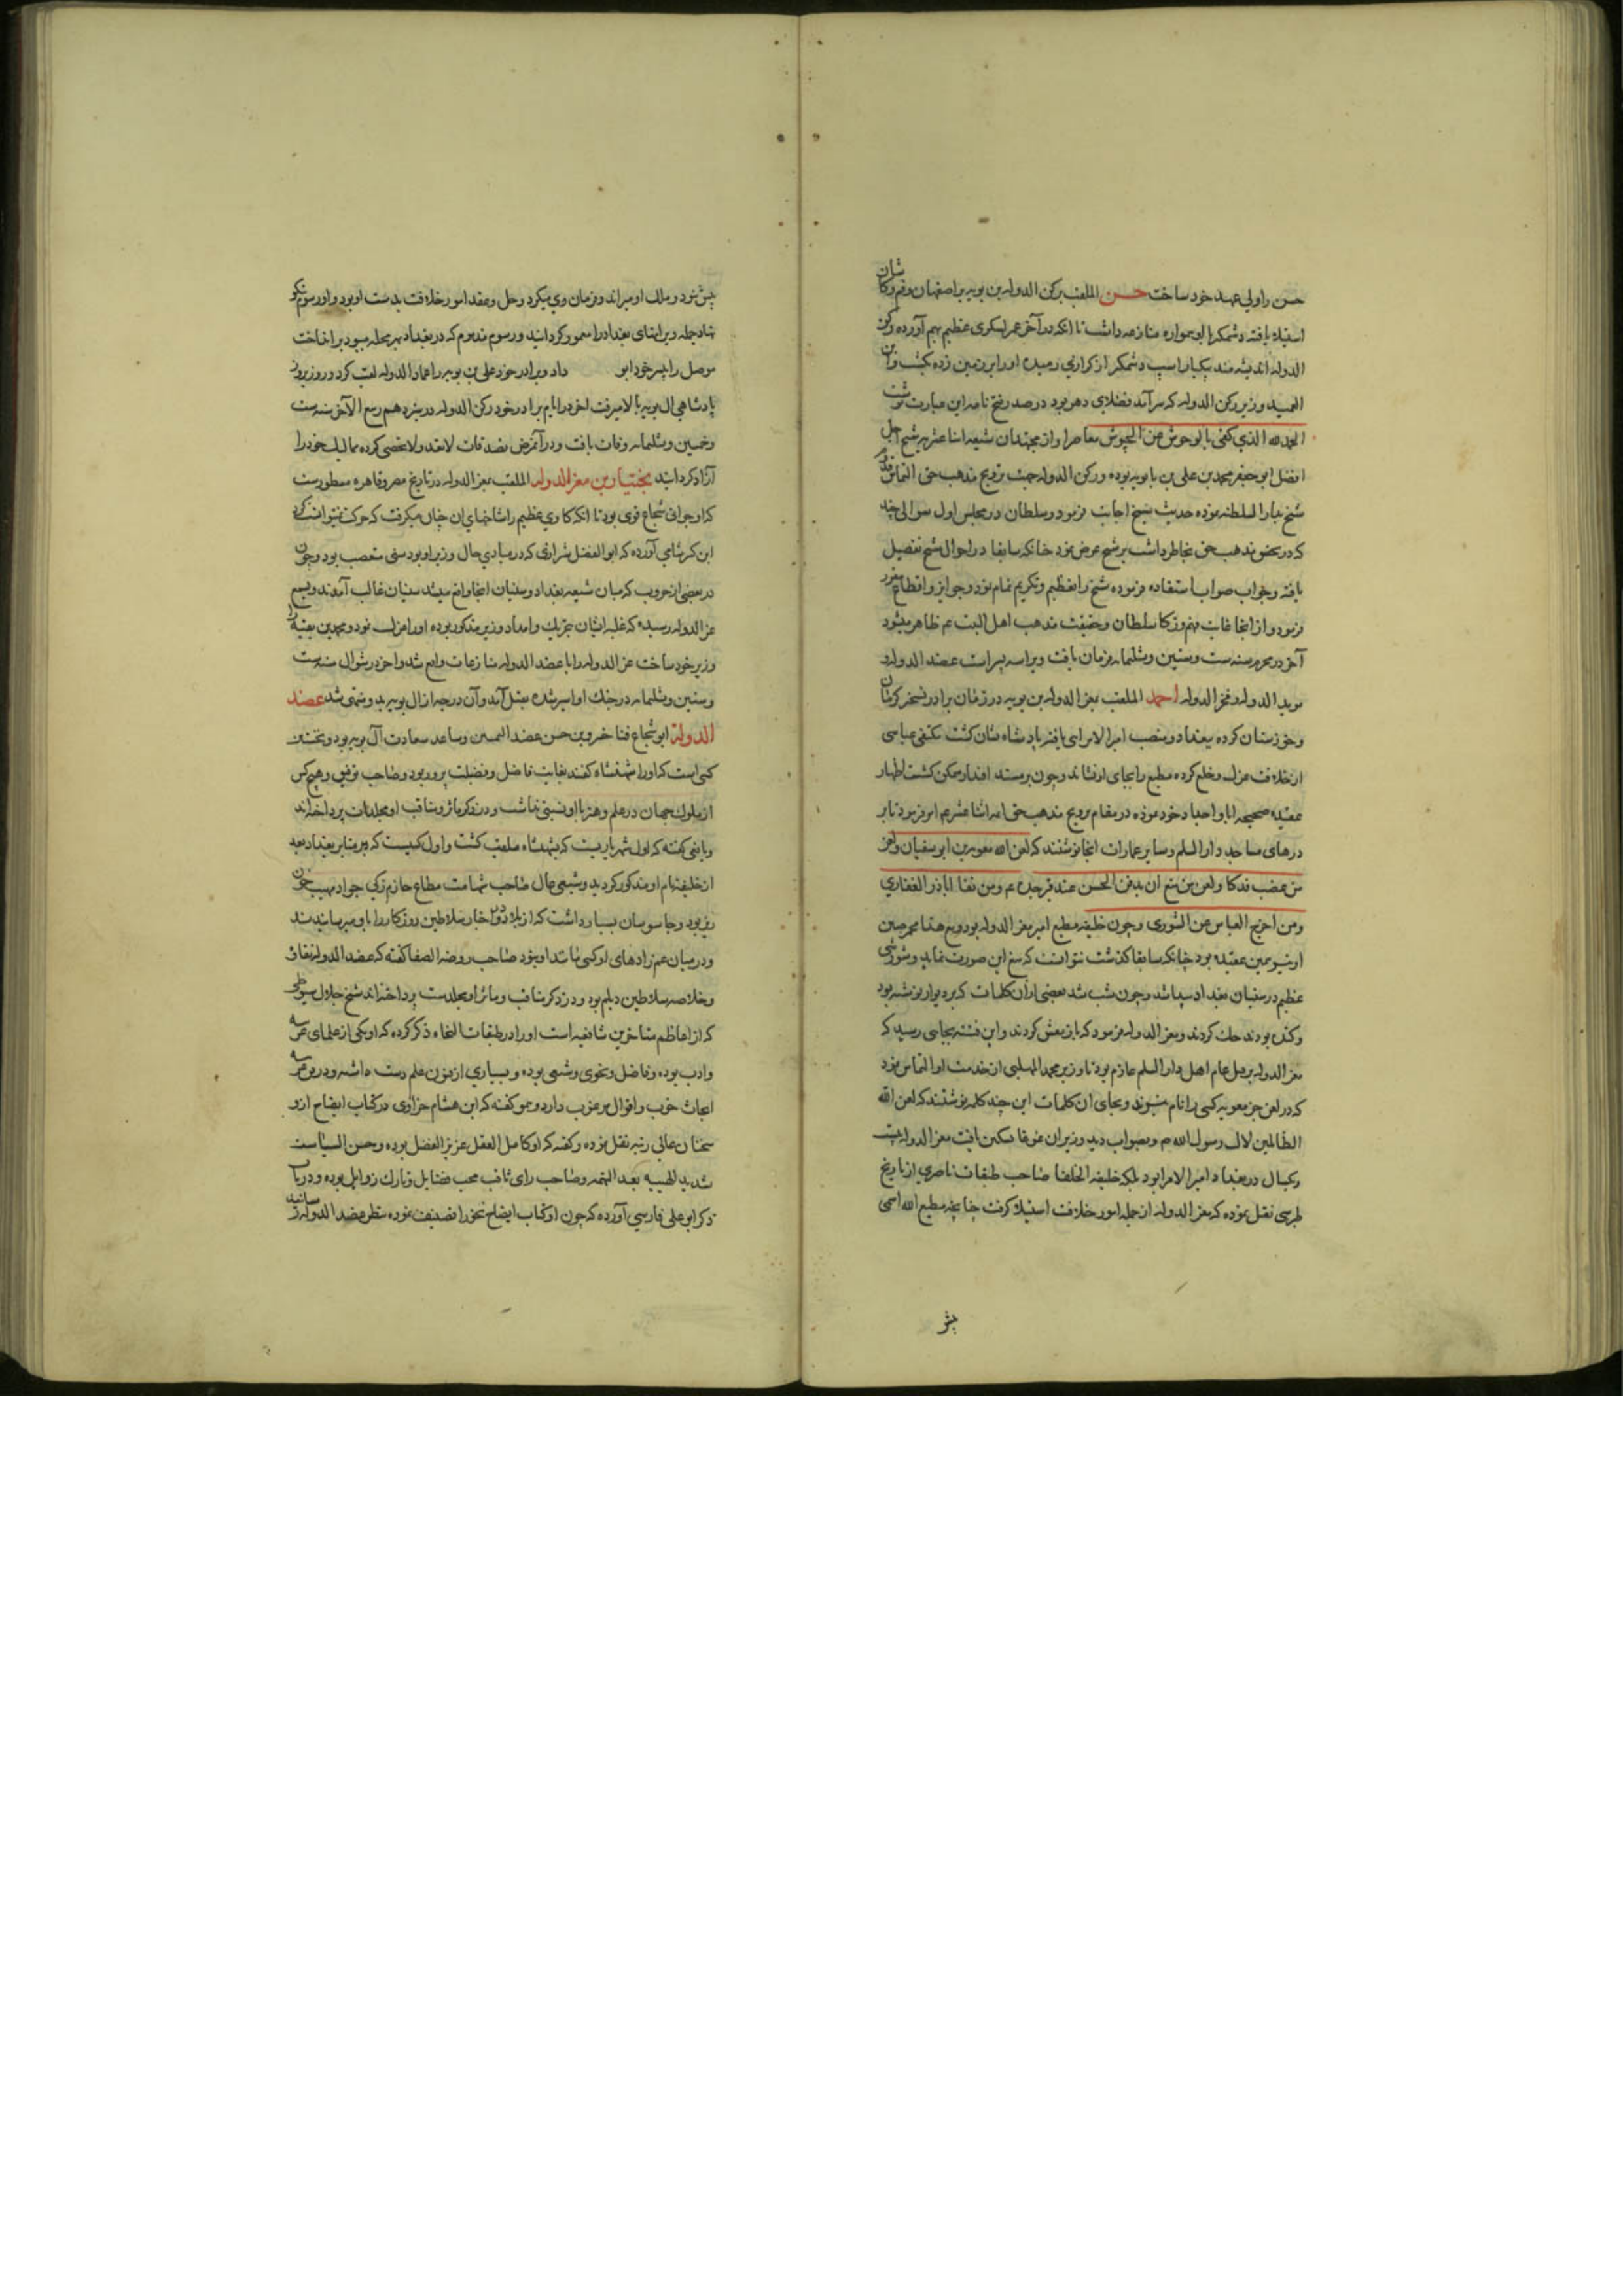 حسن را ولی عهد خود ساخت حسن الملقب برکن الدوله بن بویه بر اصفهان و قم و کاشان
استیلا یافته و شمکیر با او همواره منازعه داشت تا انکه در آخر عمر لشکری عظیم بهم آورده و رکن
الدوله اندیشه مند یکبار اسب وشمکیر از کرازی رمیده او را بر زمین زده بکشت و ابن
العمید وزیر رکن الدوله که سرآمد فضلای دهر بود در صدر فتح نامه این عبارت نوشت
الحمد لله الذی کفی بالوحوش عن الجیوش معاصر او از مجتهدان شیعه اثنا عشریه شیخ اجل
افضل ابو جعفر محمد بن علی بن بابویه بوده و رکن الدوله جهت ترویج مذهب حق التماس قدوم
شیخ بدار السلطنه نموده حدیث شیخ اجابت فرمود و سلطان در مجلس اول سوالی چند
که در حضو مذهب حق بخاطر داشت بر شیخ عرض نمود چنانکه سابقا در احوال شیخ تفصیل
یافته و جواب صواب استفاده فرموده شیخ را تعظیم و تکریم تمام نمود و جوایز و اقطاع مقرر
فرمود و از انجا غایت فهم و زکا سلطان و حقیقت مذهب اهل البیت عم ظاهر میشود
آخر در محرم سنه ست و ستین و ثلثمایه فرمان یافت و برا سه پسر است عضد الدوله و
موید الدوله و فخر الدوله احمد الملقب بمعز الدوله بن بویه در زمان برادر تسخیر کرمان
و خوزستان کرده ببغداد و منصب امیر الامرایی یافته پادشاه نشان کشت مکتفی عباسی
از خلافت عزل و خلع کرده مطیع را بجای او نشاند و چون بر مسند اقتدار متمکن کشت اظهار
عقیده صحیحه ابا و اجداد خود نموده در مقام ترویج مذهب حق ائمه اثنا عشر عم امر فرمود تا بر
درهای مساجد دار السلم و سایر عمارات انجا نوشتند که لعن الله معویة بن ابو سفیان و لعن
من غضب فدکا و لعن من منع ان یدفن الحسن عند قبر جده عم و من نفا اباذر الغفاری
و من اخرج العباس عن الشوری و چون خلیفه مطیع امیر معز الدوله بود و مع هذا محرمین
او نیز بهمین عقیده بود چنانکه سابقا کذشت نتوانست که منع این صورت نماید و شورشی
عظیم در سنیان بغداد پیدا شد و چون شب شد بعضی از آن کلمات که بر دیوار نوشته بود
و کنده بودند حک کردند و معز الدوله فرمود که باز نقش کردند و این فتنه بجایی رسید که
معز الدوله بر قتل عام اهل دار السلم عازم بود تا وزیر محمد المهلبی از خدمت او التماس نمود
که در لعن جز معویه کسی را نام نبرند و بجای ان کلمات این چند کلمه نوشتند که لعن الله
الظالمین لال رسول الله صم و بصواب دید وزیر ان غوغا تسکین یافت معز الدوله بیست
و یکسال در بغداد امیر الامرا بود بلکه خلیفه الخلفا صاحب طبقات ناصری از تاریخ
طبرسی نقل نموده که معز الدوله از جمله امور خلافت استیلا کرفت چنانچه مطیع الله اسمی
بیش
بیش نبود و ملک او میراند و فرمان وی میکرد و حل و عقد امور خلافت بدست او بود و او رسوم نیکو
نهاد جمله ویرانهای بغداد را معمور کردانید و رسوم مذموم که در بغداد بهر محله میبود بر انداخت
موصل را بپسر خود ابو داد و برادر خود علی بن بویه را عماد الدوله لقب کرد و روز بروز
پادشاهی ال بویه بالا میرفت اخر در ایام برادر خود رکن الدوله در سیزدهم ربیع الآخر سنه ست
و خمسین و ثلثمایه وفات یافت و در آن مرض بصدقات لاتعد و لا تحصی کرده ممالیک خود را
آزاد کرد ایند بختیار بن معز الدوله الملقب بعز الدوله در تاریخ مصر و قاهره مسطور ست
که او جوانی شجاع قوی بود تا انکه کاوی عظیم را شاخهای ان چنان میکرفت که حرکت نمیتوانست کرد
ابن کثیر شامی آورده که ابو الفضل شیرازی که در مبادی حال وزیر او بود سنی متعصب بود و چون
در بعضی از حروب که میان شیعه بغداد و سنیان انجا واقع میشد سنیان غالب آمدند و بسمع
عز الدوله رسیده که غلبه ایشان بتحریک و امداد وزیر مذکور بوده او را عزل نمود و محمد بن بقیه را
وزیر خود ساخت عز الدوله را با عضد الدوله منازعات واقع شد و اخر در شوال سنه ست
و ستین و ثلثمایه در جنک او اسیر شده بقتل آمد و آن درجه از ال بویه بدو منتهی شد عضد
الدولة ابو شجاع فنا خسرو بن حسن عضد الیمین و ساعد سعادت آل بویه بود و نخستین
کسی است که او را شهنشاه کفتند بغایت فاضل و فضیلت پرور بود و صاحب توفیق و هیچ کس
از ملوک جهان در علم و هنر با او نسبتی نداشت و در ذکر ماثر و مناقب او مجلدات پرداخته اند
و یافعی کفته که اول شهریاریست که بشهنشاه ملقب کشت و اول کسیست که بر منابر بغداد بعد
از خلیفه نام او مذکور کردید و شبنی حال صاحب شهامت مطاع حازم زکی جواد مهیب خون
ریز بود و جاسوسان بسیار داشت که از بلاد دور اخبار سلاطین روزکار را باو میرسانیدند
و در میان عم زادهای او کسی مانند او نبود صاحب روضه الصفا کفته که عضد الدوله نقاوه
و خلاصه سلاطین دیلم بود و در ذکر مناقب و ماثر او مجلدست پرداخته اند شیخ جلال سیوطی
که از اعاظم متاخرین شافعیه است او را در طبقات النحاه ذکر کرده که او یکی از علمای عربیه
و ادب بوده و فاضل و نحوی و شیعی بوده و بسیاری از فنون علم دست داشته و در فن عربیه
ابحاث خوب و اقوال مرغوب دارد و هم او کفته که ابن هشام خزاوی در کتاب ایضاح ازو
سخنان عالی رتبه نقل نموده و کفته که او کامل العقل عزیز الفضل بوده و حسن السیاست
شدید الهیبه بعید الهمه و صاحب رای ثاقب محب فضایل و تارک رذایل بوده و در باب
ذکر ابو علی فارسی آورده که چون او کتاب ایضاح نحو را تصنیف نموده بنظر عضد الدوله رسانید